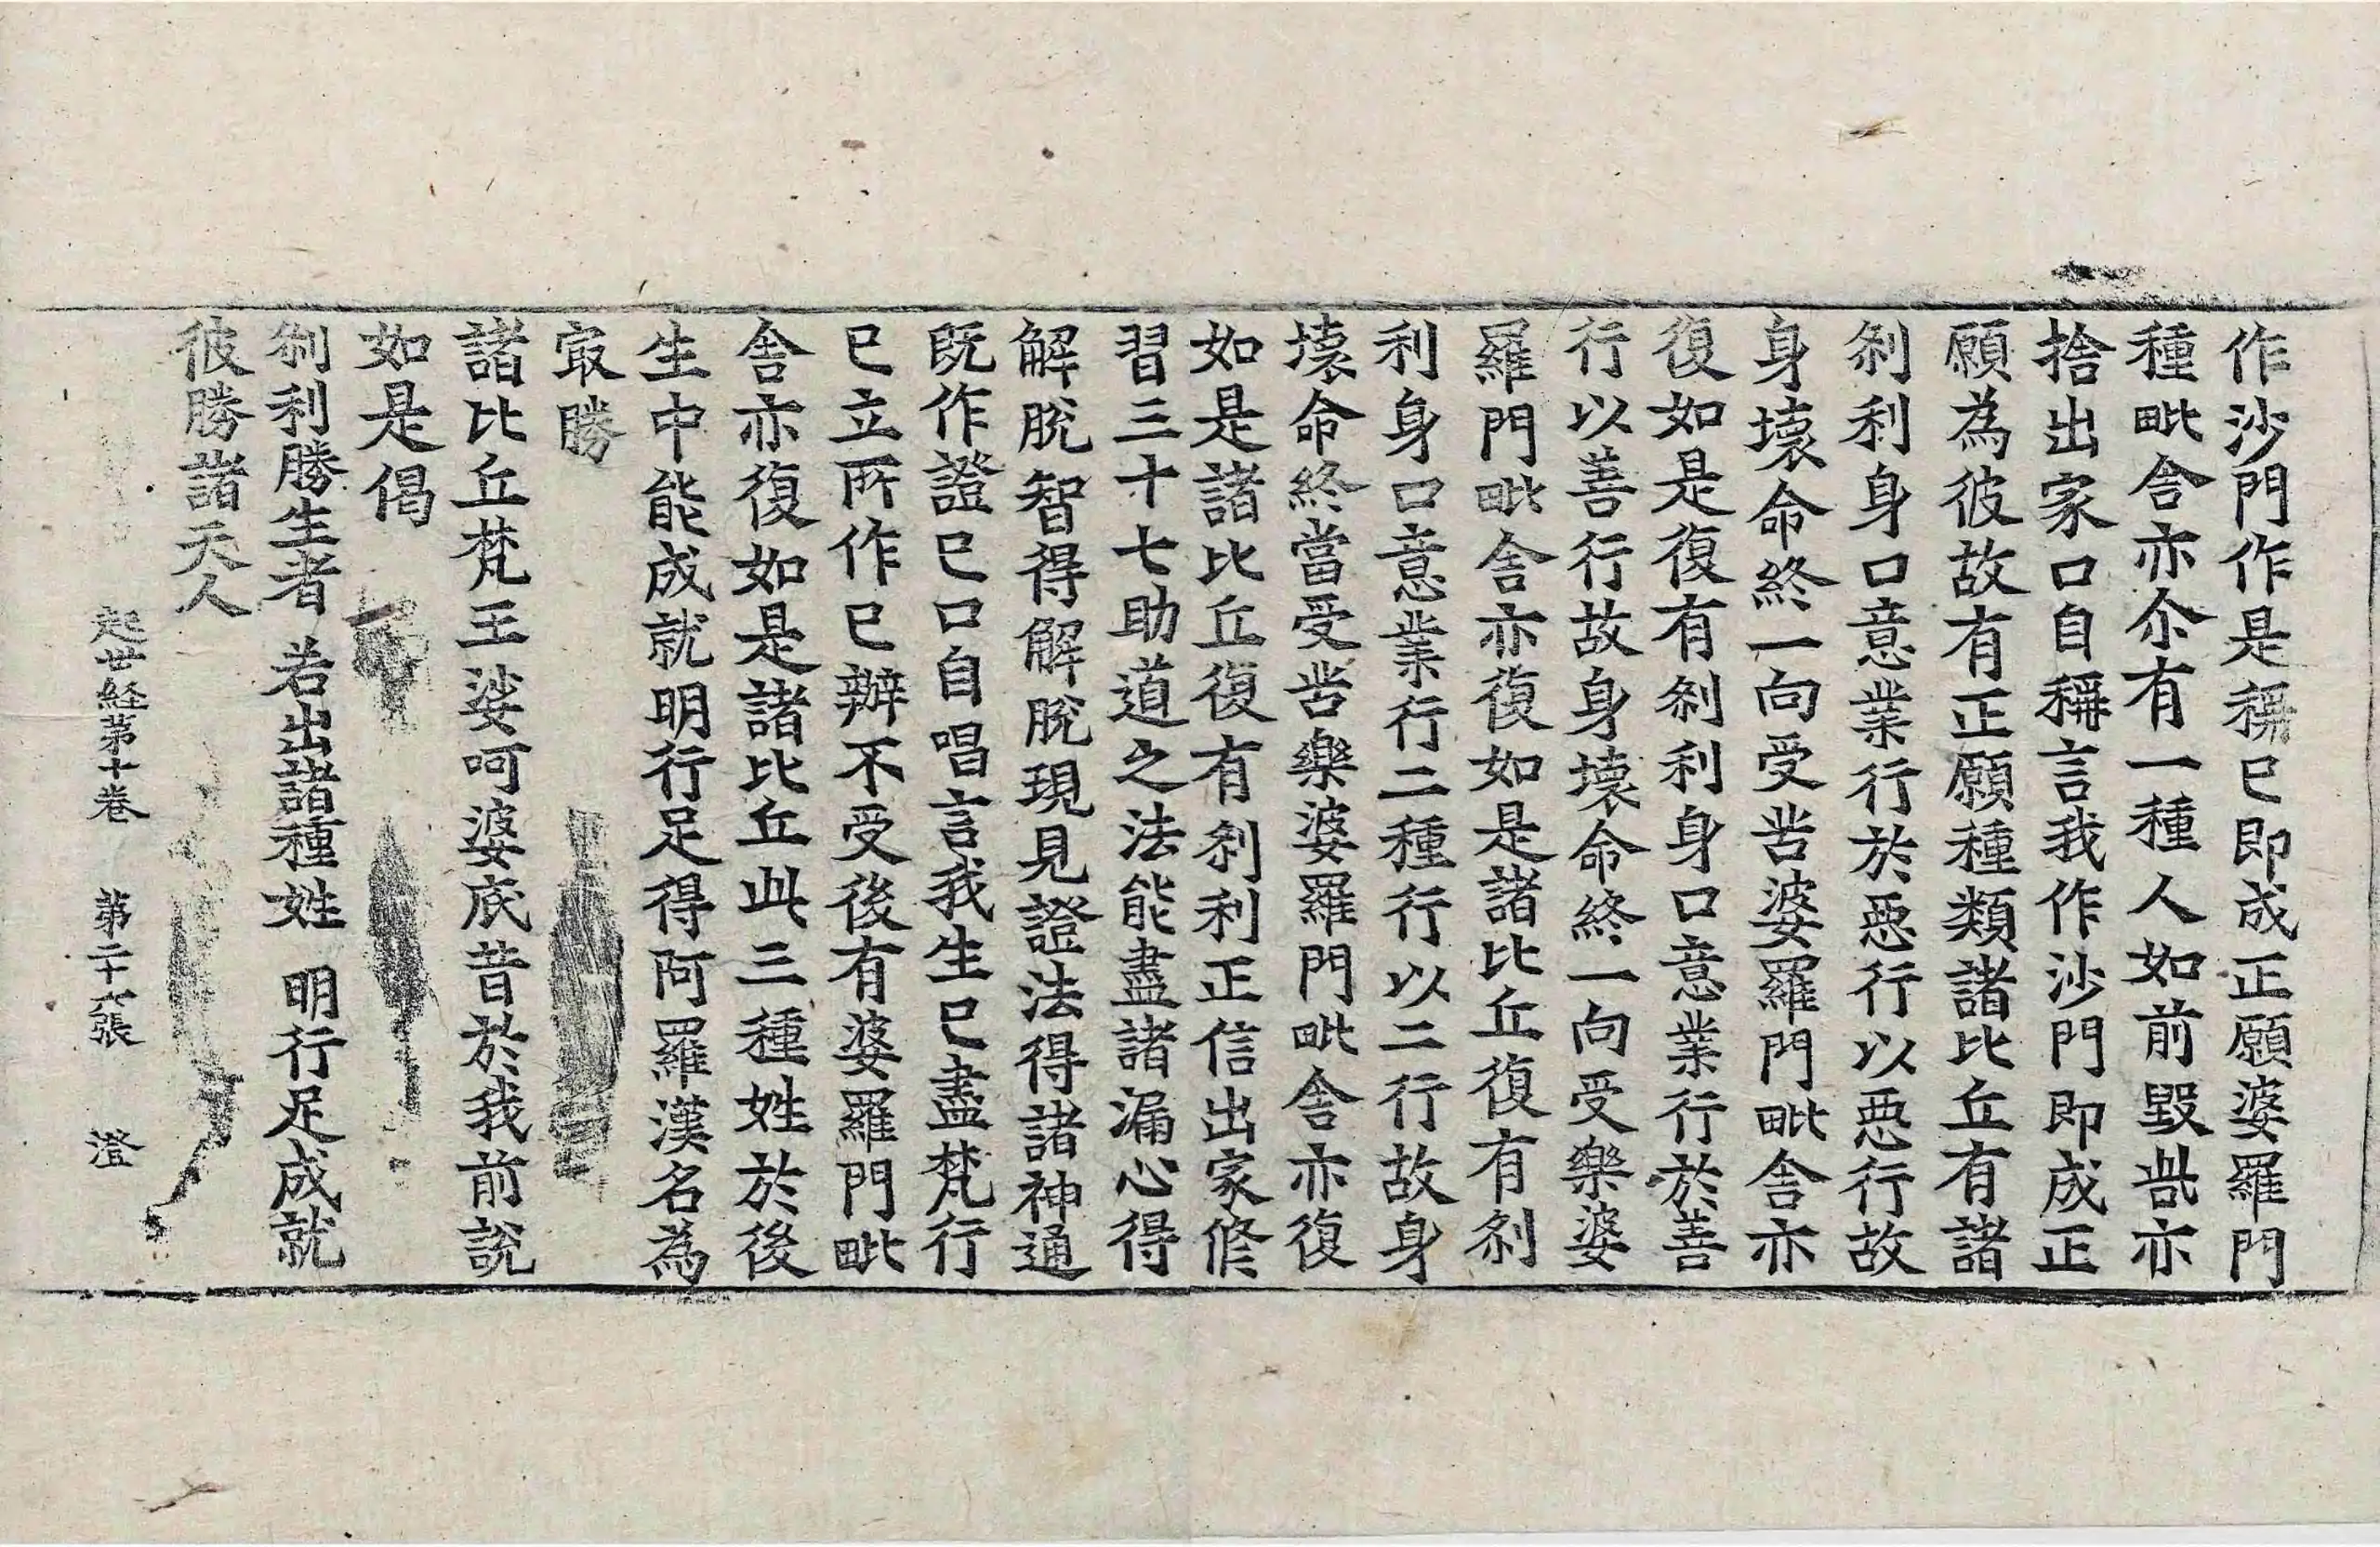 作沙門作是稱已即成正願婆羅門
種毗舍亦尒有一種人如前毀呰亦
捨出家口自稱言我作沙門即成正
願為彼故有正願種類諸比丘有諸
刹利身口意業行於惡行以惡行故
身壞命終一向受苦婆羅門毗舍亦
復如是復有刹利身口意業行於善
行以善行故身壞命終一向受樂婆
羅門毗舍亦復如是諸比丘復有刹
利身口意業行二種行以二行故身
壞命終當受苦樂婆羅門毗舍亦復
如是諸比丘復有刹利正信出家修
習三十七助道之法能盡諸漏心得
解脫智得解脫現見證法得諸神通
既作證已口自唱言我生已盡梵行
已立所作已辦不受後有婆羅門毗
舍亦復如是諸比丘此三種姓於後
生中能成就明行足得阿羅漢名為
㝡勝
諸比丘梵王娑呵婆底昔於我前說
如是偈
刹利勝生者 若出諸種姓 明行足成就
彼勝諸天人
起世経第十卷 第二十六張 澄